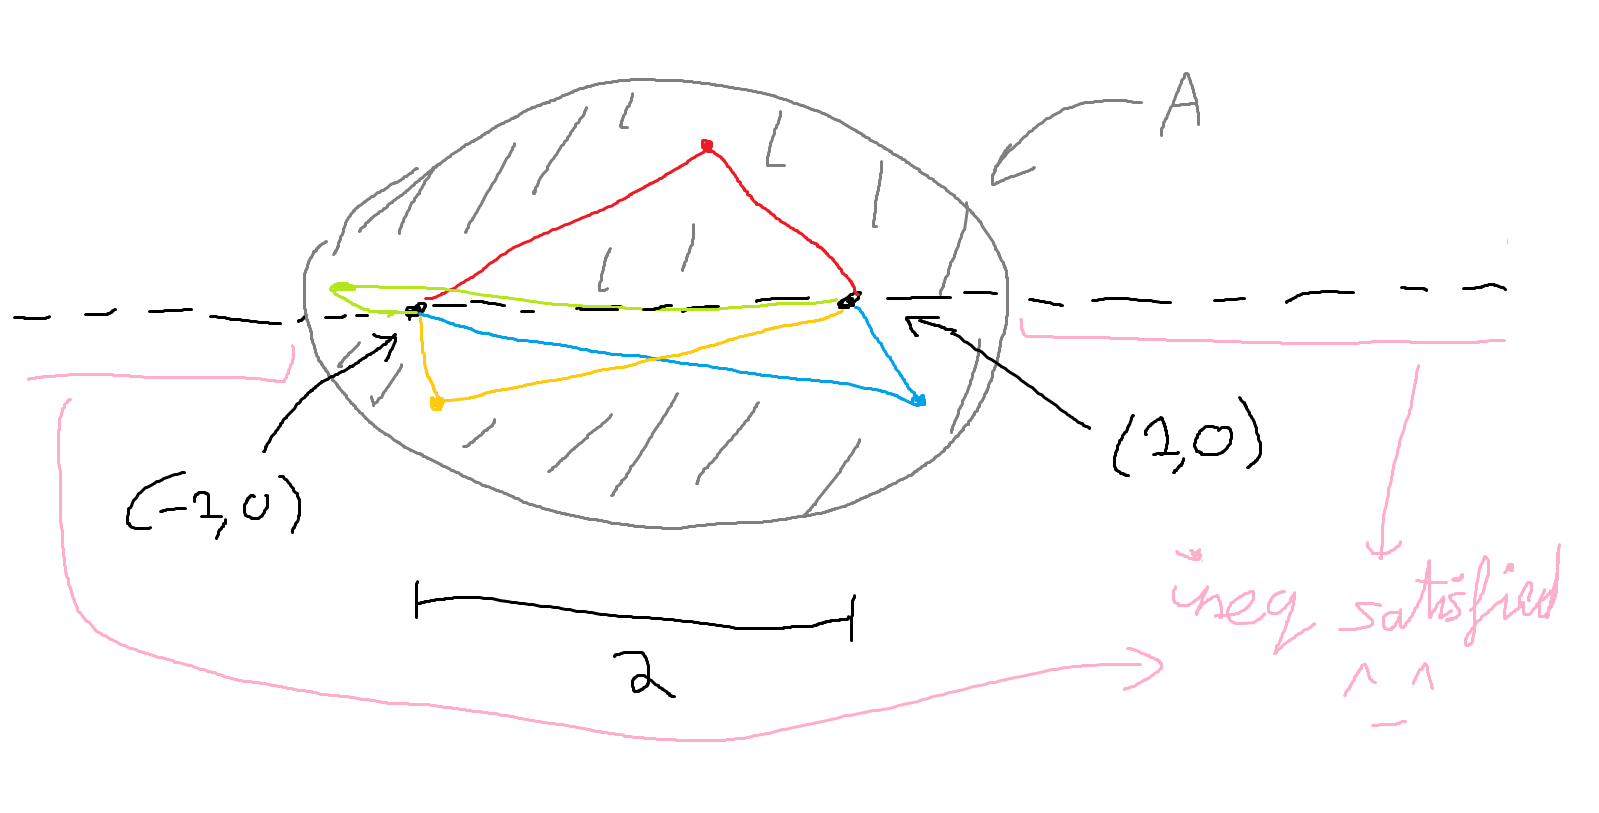 A
(-1,0)
(1,0)
2
ineq satisfied
^_^